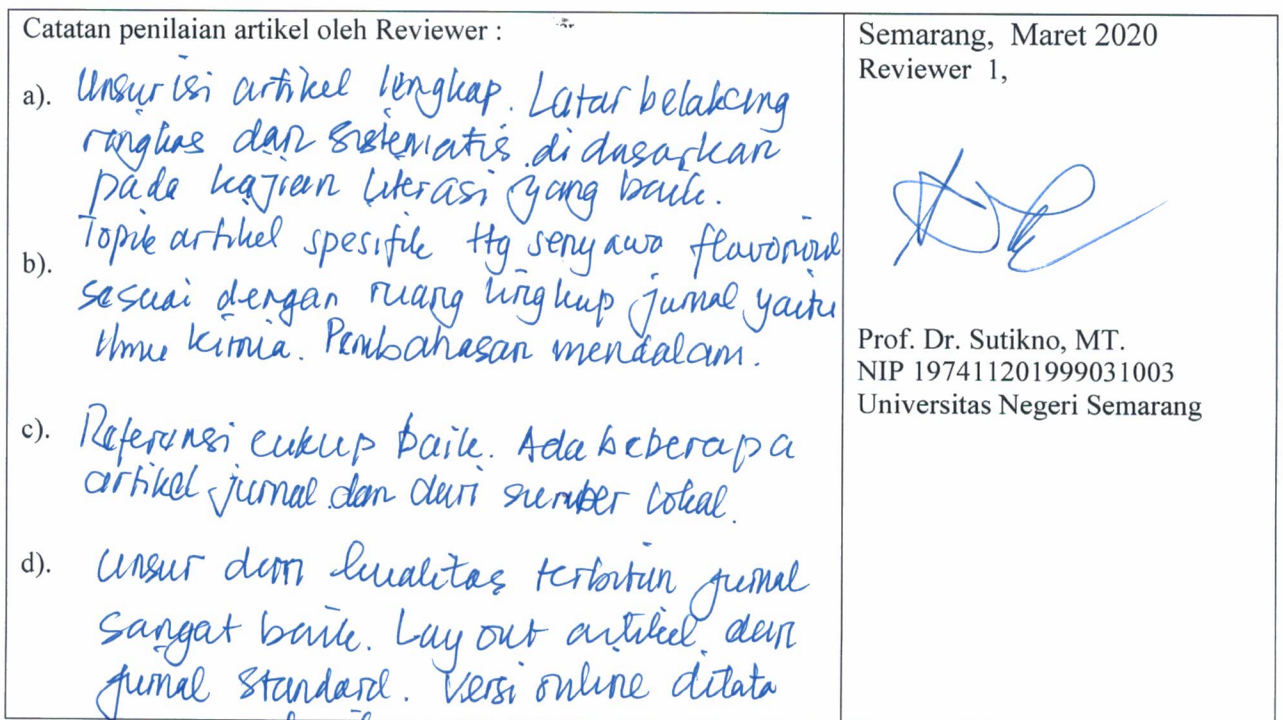 Catatan penilaian artikel oleh Reviewer :
a). Unsur isi artikel lengkap. Latar belakang
ringkas dan sistematis didasarkan
pada kajian literasi yang baik.
b). Topik artikel spesifik ttg senyawa flavonoid
sesuai dengan ruang lingkup jurnal yaitu
ilmu kimia. Pembahasan mendalam.
c). Referensi cukup baik. Ada beberapa
artikel jurnal dan dari sumber lokal.
d). Unsur dan kualitas terbitan jurnal
sangat baik. Lay out artikel dan
jurnal standard. Versi online ditata
Semarang, Maret 2020
Reviewer 1,
Prof. Dr. Sutikno, MT.
NIP 197411201999031003
Universitas Negeri Semarang